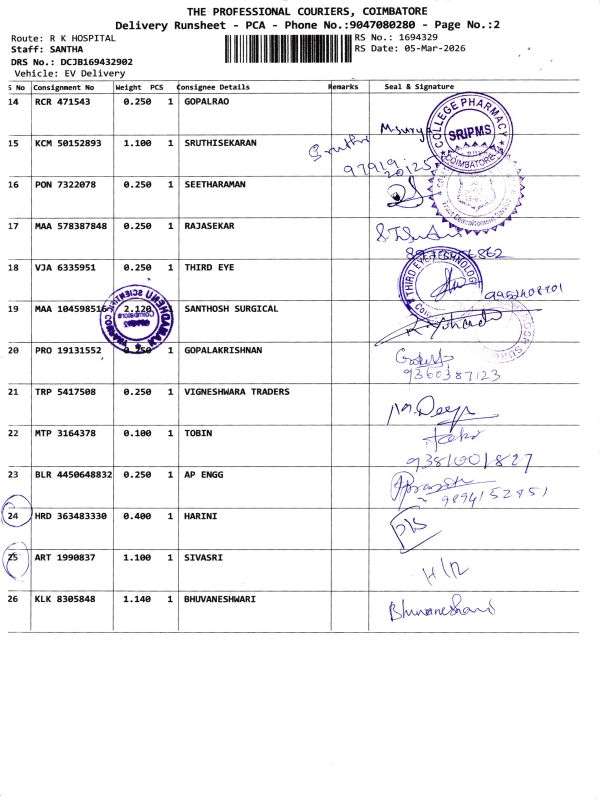 THE PROFESSIONAL COURIERS, COIMBATORE
Delivery Runsheet - PCA - Phone No.:9047080280 - Page No.:2
Route: R K HOSPITAL RS No.: 1694329
Staff: SANTHA RS Date: 05-Mar-2026
DRS No.: DCJB169432902
Vehicle: EV Delivery
S No Consignment No Weight PCS Consignee Details Remarks Seal & Signature
14 RCR 471543 0.250 1 GOPALRAO M. Surya
COLLEGE PHARMACY SRIPMS COIMBATORE
15 KCM 50152893 1.100 1 SRUTHISEKARAN Sruthi
97919 20125
16 PON 7322078 0.250 1 SEETHARAMAN
17 MAA 578387848 0.250 1 RAJASEKAR
18 VJA 6335951 0.250 1 THIRD EYE
THIRD EYE TECHNOLOGY
19 MAA 104598516 2.120 1 SANTHOSH SURGICAL
20 PRO 19131552 0.250 1 GOPALAKRISHNAN
9360387123
21 TRP 5417508 0.250 1 VIGNESHWARA TRADERS
M. Deepa
22 MTP 3164378 0.100 1 TOBIN
9381001827
23 BLR 4450648832 0.250 1 AP ENGG
9894152951
24 HRD 363483330 0.400 1 HARINI
25 ART 1990837 1.100 1 SIVASRI
H/R
26 KLK 8305848 1.140 1 BHUVANESHWARI
Bhuvaneshwari